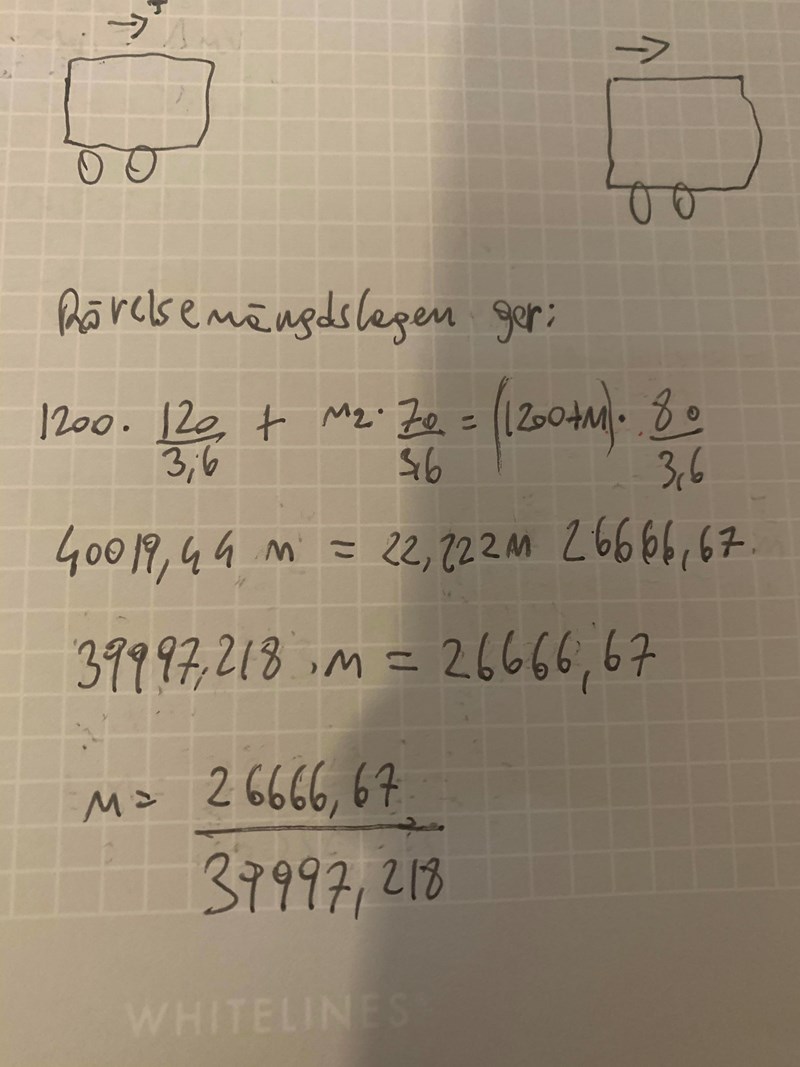 Rörelsemängdslagen ger:
1200 · 120/3,6 + m2 · 70/3,6 = (1200+m) · 80/3,6
40019,44 m = 22,222m 26666,67.
39997,218 · m = 26666,67
m = 26666,67/39997,218
WHITELINES®